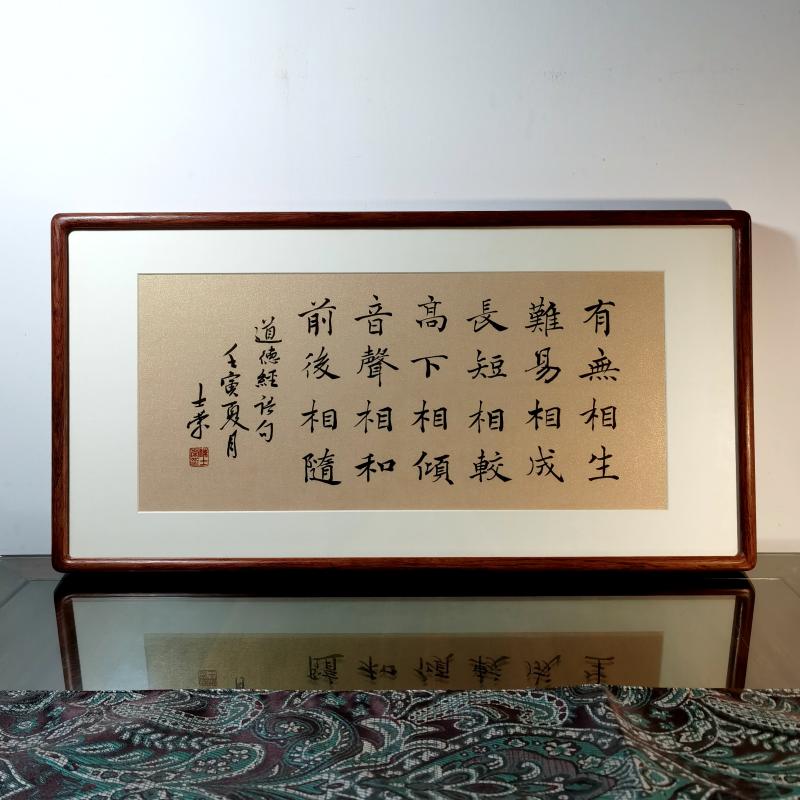 有無相生
難易相成
長短相較
高下相傾
音聲相和
前後相隨
道德經語句
壬寅夏月
士業